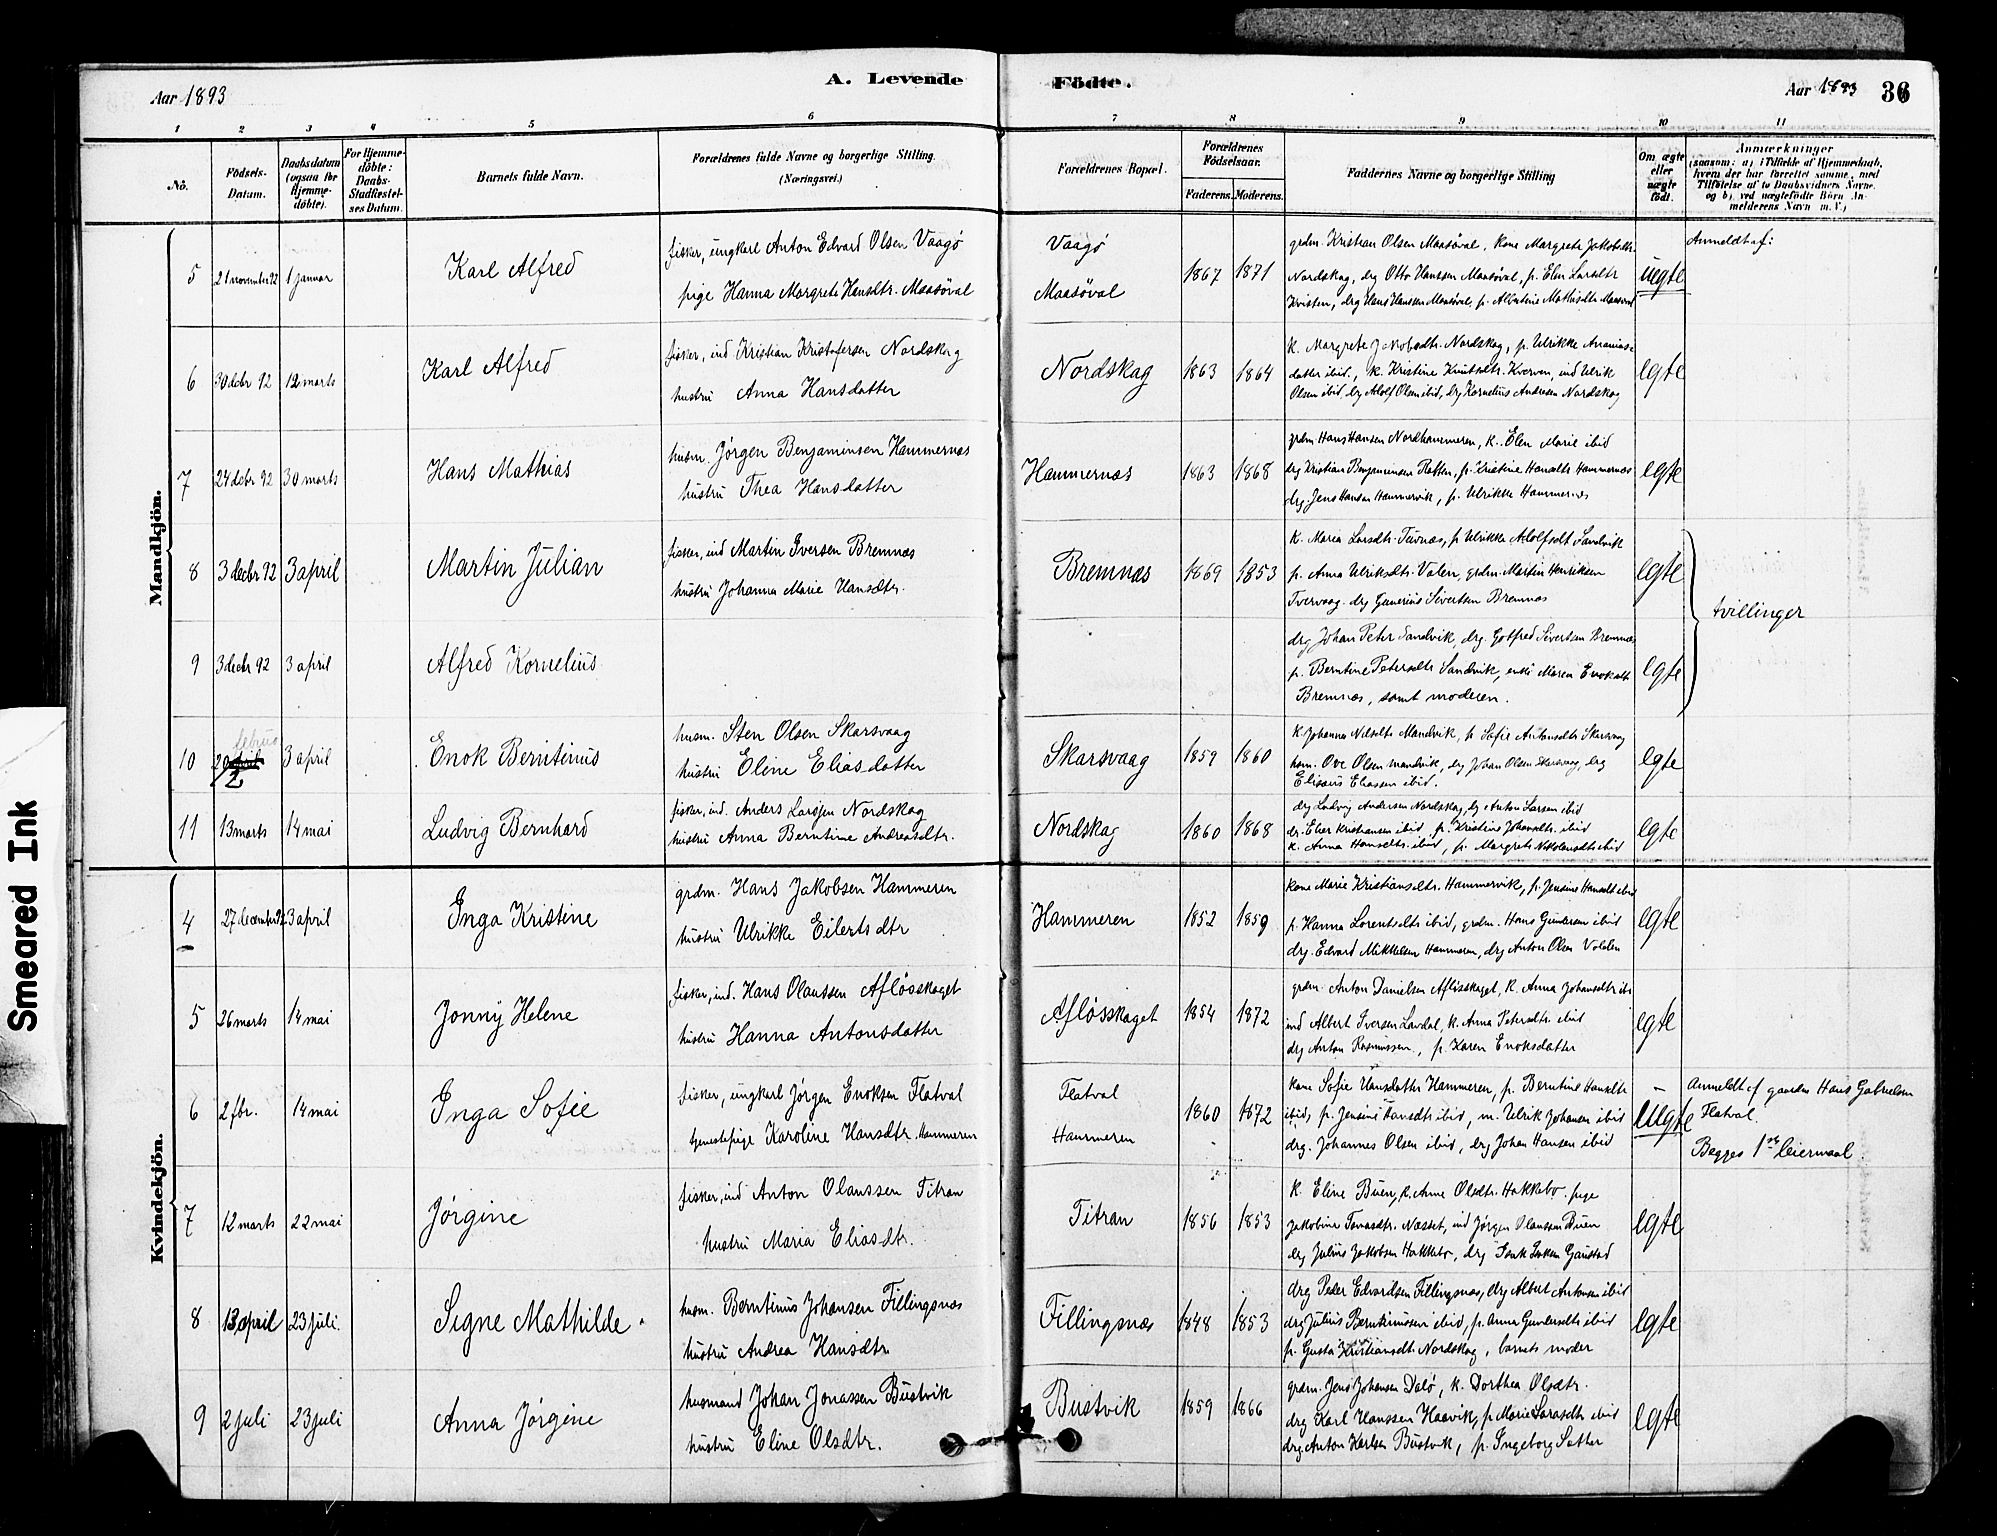 Smeared Ink
Aar 1893
A. Levende
Födte.
Aar 1893
36
1 2 3 4 5 6 7 8 9 10 11
No.
Födsels-Datum.
Daabsdatum (ogsaa for Hjemmedöbte).
For Hjemmedöbte: Daabs-Stadfæstelses Datum.
Barnets fulde Navn.
Forældrenes fulde Navne og borgerlige Stilling.
(Næringsvei.)
Forældrenes Bopæl.
Forældrenes Födselsaar.
Faderens. Moderens.
Faddernes Navne og borgerlige Stilling
Om ægte eller uægte födt.
Anmærkninger
(saasom: a) i Tilfælde af Hjemmedaab,
hvem der har forrettet samme, med
Tilföielse af to Daabsvidners Navne,
og b) ved uægtefödte Börn An-
melderens Navn m. V.)
Mandkjön.
5 21 november 92 1 januar Karl Alfred
fisker, ungkarl Anton Edvard Olsen Vaagö
pige Hanna Margrete Hansdtr. Maasöval
Vaagö
Maasöval
1867 1871
grdm. Kristian Olsen Maasöval, kone Margrete Jakobsdtr.
Nordskag, drg Otto Hanssen Maasöval, p. Elen Larsdtr
Kvisten, drg Hans Hanssen Maasöval, p. Albertine Mathisdtr Maasöval
uegte
Anmeldt af:
6 30 decbr 92 12 marts Karl Alfred
fisker, ind Kristian Kristofersen Nordskag
hustru Anna Hansdatter
Nordskag 1863 1864
k. Margrete Jakobsdtr. Nordskag, p. Ulrikke Ananias-
datter ibid., k. Kristine Knutsdtr. Kverven, ind Ulrik
Olsen ibid, drg Adolf Olsen ibid, drg Kornelius Andresen Nordskag
egte
7 24 decbr 92 30 marts Hans Mathias
husm. Jörgen Benjaminsen Hammernæs
hustru Thea Hansdatter
Hammernæs 1863 1868
grdm Hans Hansen Nordhammeren, k. Elen Marie ibid
drg Kristian Benjaminsen Flatten, p. Kristine Hansdtr Hammernæs
drg. Jens Hansen Hammervik, p. Ulrikke Hammernæs
egte
8 3 decbr 92 3 april Martin Julian
fisker, ind Martin Iversen Bremnæs
hustru Johanna Marie Hansdtr.
Bremnæs 1869 1853
k. Maria Larsdtr. Tuvnæs, p Ulrikke Adolfsdt Sandvik
p. Anna Ulriksdtr. Valen, grdm. Martin Henriksen
Tvervaag. drg Gunerius Sivertsen Bremnæs
egte
tvillinger
9 3 decbr 92 3 april Alfred Kornelius
drg Johan Peter Sandvik, drg. Gotfred Sivertsen Bremnæs
p. Berntine Petersdtr Sandvik, enke Maren Enoksdtr
Bremnæs, samt moderen.
egte
10 20 februar 3 april Enok Berntinus
husm. Sten Olsen Skarsvaag
hustru Eline Eliasdatter
Skarsvaag 1859 1860
k Johanna Nilsdtr Mandvik, p Sofie Antonsdtr Skarsvaag
hsm. Ove Olsen mandvik, drg Johan Olsen Skarsvaag, drg
Elisæus Eliassen ibid.
egte
11 13 marts 14 mai Ludvig Bernhard
fisker, ind. Anders Larssen Nordskag
hustru Anna Berntine Andreasdtr.
Nordskag 1860 1868
drg Ludvig Andersen Nordskag, drg Anton Larsen ibid
dr. Elier Kristiansen ibid, p. Kristine Johansdtr. ibid
k. Anna Hansdtr. ibid, p. Margrete Nikolausdtr ibid
egte
Kvindekjön.
4 27 december 92 3 april Inga Kristine
grdm. Hans Jakobsen Hammeren
hustru Ulrikke Eilertsdtr
Hammeren 1852 1859
kone Marie Kristiansdtr. Hammervik, p. Jensine Hansdt ibid
p. Hanna Lorentsdtr ibid, grdm. Hans Gundersen ibid
drg. Edvard Mikkelsen Hammeren, drg Anton Olsen Volden
egte
5 26 marts 14 mai Jonny Helene
fisker, ind. Hans Olaussen Aflösskaget
hustru Hanna Antonsdatter
Aflösskaget 1854 1872
grdm. Anton Danielsen Aflösskaget, k. Anna Johansdtr ib
ind Albert Iversen Lavdal, k. Anna Petersdtr. ibid
drg Anton Rasmussen, p. Karen Enoksdatter
egte
6 2 fbr. 14 mai Inga Sofie
fisker, ungkarl Jörgen Enoksen Flatval
tjenestepige Karoline Hansdtr. Hammeren
Flatval
Hammeren
1860 1872
kone Sofie Hansdatter Hammeren, p. Berntine Hansdtr
ibid, p. Jensine Hansdtr ibid, m. Ulrik Johansen ibid
drg. Johannes Olsen ibid, drg Johan Hansen ibid
uegte
Anmeldt af gaardm Hans Gabrielsen
Flatval.
Begges 1ste leiermaal.
7 12 marts 22 mai Jörgine
fisker, ind Anton Olaussen Titran
hustru Maria Eliasdtr.
Titran 1856 1853
k. Eline Buen, k. Anne Olsdtr. Hakkebo. pige
Jakobine Tomasdtr. Næsset, ind Jörgen Olaussen Buen
drg Julius Jakobsen Hakkebo, drg Gaustad
egte
8 13 april 23 juli. Signe Mathilde.
husm. Berntinus Johansen Fillingsnæs
hustru Andrea Hansdtr.
Fillingsnæs 1848 1853
drg Peder Edvardsen Fillingsnæs, drg Albert Antonsen ibid
drg Julius Berntinussen ibid, p. Anna Gundersdtr ibid
p. Gusta Kristiansdtr. Nordskag, barnets moder
egte
9 2 juli 23 juli Anna Jörgine
husmand Johan Jonassen Bustvik
hustru Eline Olsdtr.
Bustvik 1859 1866
grdm. Jens Johansen Dalö, k. Dorthea Olsdtr.
drg Karl Hanssen Haavik, p. Marie Larsdtr ibid
drg. Anton Karlsen Bustvik, p. Ingeborg Setter
egte